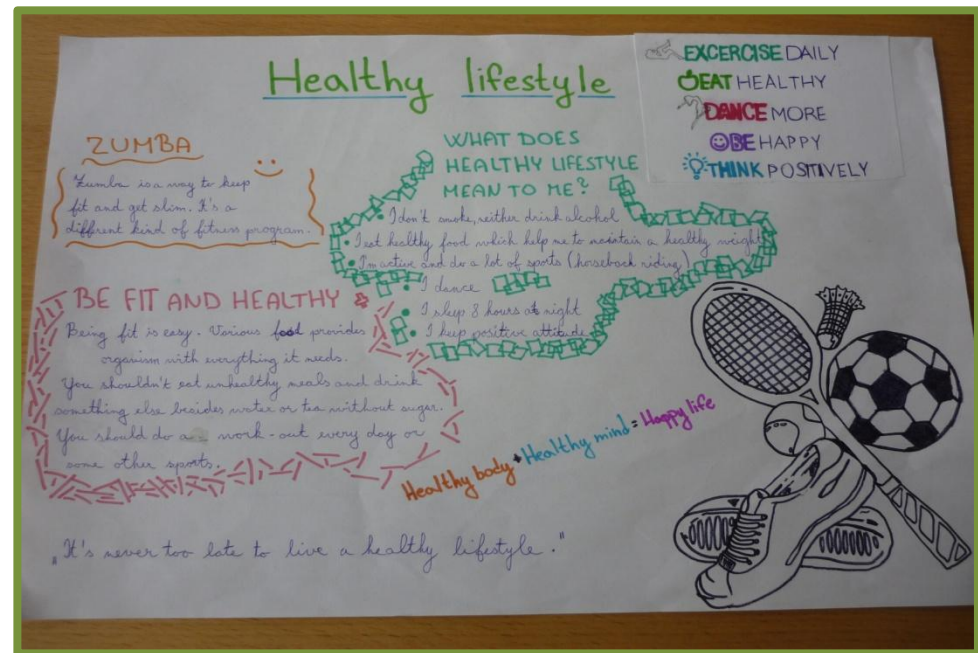 Healthy lifestyle
EXCERCISE DAILY
EAT HEALTHY
DANCE MORE
BE HAPPY
THINK POSITIVELY
ZUMBA
Zumba is a way to keep
fit and get slim. It's a
different kind of fitness program.
WHAT DOES
HEALTHY LIFESTYLE
MEAN TO ME?
• I don't smoke, neither drink alcohol
• I eat healthy food which help me to maintain a healthy weight
• I'm active and do a lot of sports (horseback riding)
• I dance
• I sleep 8 hours at night
• I keep positive attitude
BE FIT AND HEALTHY
Being fit is easy. Various food provides
organism with everything it needs.
You shouldn't eat unhealthy meals and drink
something else besides water or tea without sugar.
You should do a work-out every day or
some other sports.
Healthy body + Healthy mind = Happy life
„It's never too late to live a healthy lifestyle."